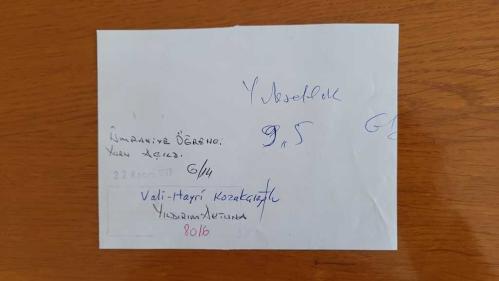 Yükseklik
9,5
G/
ÜMRANİYE ÖĞRENCİ
YURDU AÇILIŞ.
G/14
Vali-Hayri Kozakçıoğlu
YILDIRIM AKTUNA
80/6